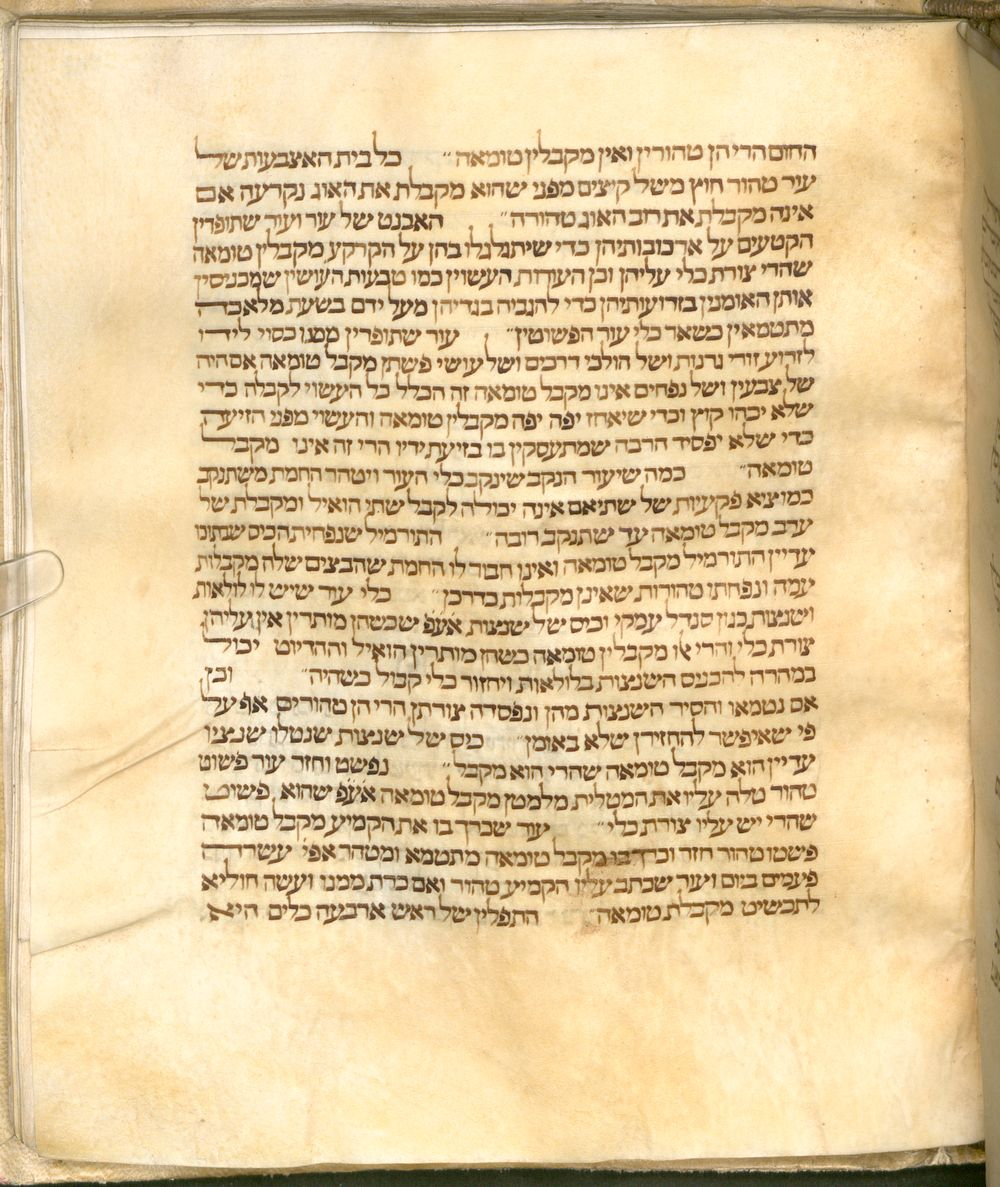 החום הרי הן טהורין ואין מקבלין טומאה״ כל בית האצבעות של
עור טהור חוץ משל קייצים מפני שהוא מקבלת את האוג נקרעה אם
אינה מקבלת את רוב האוג טהורה״ האבנט של עור ועור שתופרין
הקטעים על ארכובותיהן כדי שיתגלגלו בהן על הקרקע מקבלין טומאה
שהרי צורת כלי עליהן וכן העורות העשויין כמו טבעות העושין שמכניסין
אותן האומנין בזרועותיהן כדי להגביה בגדיהן מעל ידם בשעת מלאכה
מתטמאין כשאר כלי עור הפשוטין״ עור שתופרין ממנו כסוי לידו
לזרוע זורי גרנות ושל הולכי דרכים ושל עושי פשתן מקבל טומאה אם היה
של צבעין ושל נפחים אינו מקבל טומאה זה הכלל כל העשוי לקבלה כדי
שלא יכהו קוץ וכדי שיאחז יפה יפה מקבלין טומאה והעשוי מפני הזיעה
כדי שלא יפסיד הרבה שמתעסקין בו בזיעת ידיו הרי זה אינו מקבל
טומאה״ כמה שיעור הנקב שינקב כלי העור ויטהר החמת משתנקב
כמוציא פקעיות של שתי אם אינה יכולה לקבל שתי הואיל ומקבלת של
ערב מקבל טומאה עד שתנקב רובה״ התורמיל שנפחית הכיס שבתוכו
עדיין התורמיל מקבל טומאה ואינו חבור לו החמת שהבצים שלה מקבלות
עמה ונפחתו טהורות שאינן מקבלות כדרכן״ כלי עור שיש לו לולאות
ושנצות כגון סנדל עמקי וכיס של שנצות אעפ שכשהן מותרין אין עליהן
צורת כלי והרי או מקבלין טומאה כשהן מותרין הואיל וההדיוט יכול
במהרה להכניס השנצות בלולאות ויחזור כלי קבול כשהיה״ וכן
אם נטמאו והסיר השנצות מהן ונפסדה צורתן הרי הן טהורים אף על
פי שאיפשר להחזירן שלא באומן״ כיס של שנצות שנטלו שנציו
עדיין הוא מקבל טומאה שהרי הוא מקבל״ נפשט וחזר עור פשוט
טהור טלה עליו את המטלית מלמטן מקבל טומאה אעפ שהוא פשוט
שהרי יש עליו צורת כלי״ עור שכרך בו את הקמיע מקבל טומאה
פשטו טהור חזר וכרך בו מקבל טומאה מתטמא ומטהר אפי עשרה
פעמים ביום ועור שכתב עליו הקמיע טהור ואם כרת ממנו ועשה חוליא
לתכשיט מקבלת טומאה״ התפלין של ראש ארבעה כלים היא